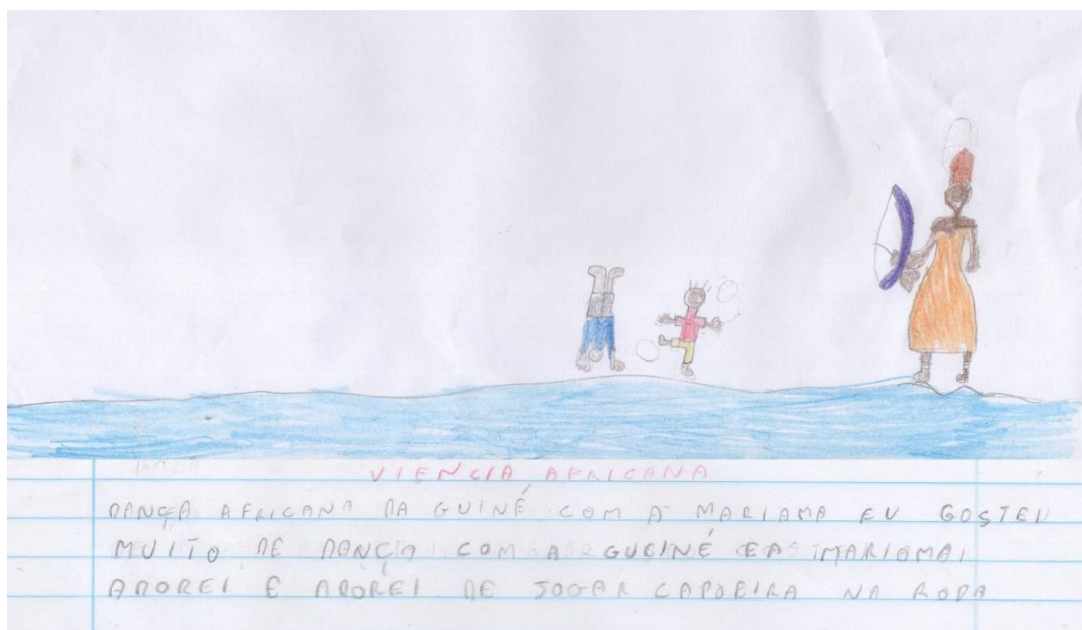 VIENCIA AFRICANA
DANÇA AFRICANA DA GUINÉ COM A MARIAMA EU GOSTEI
MUITO DE DANÇA COM A GUCINÉ MARIAMA
ADOREI E ADOREI DE JOGAR CAPOEIRA NA RODA